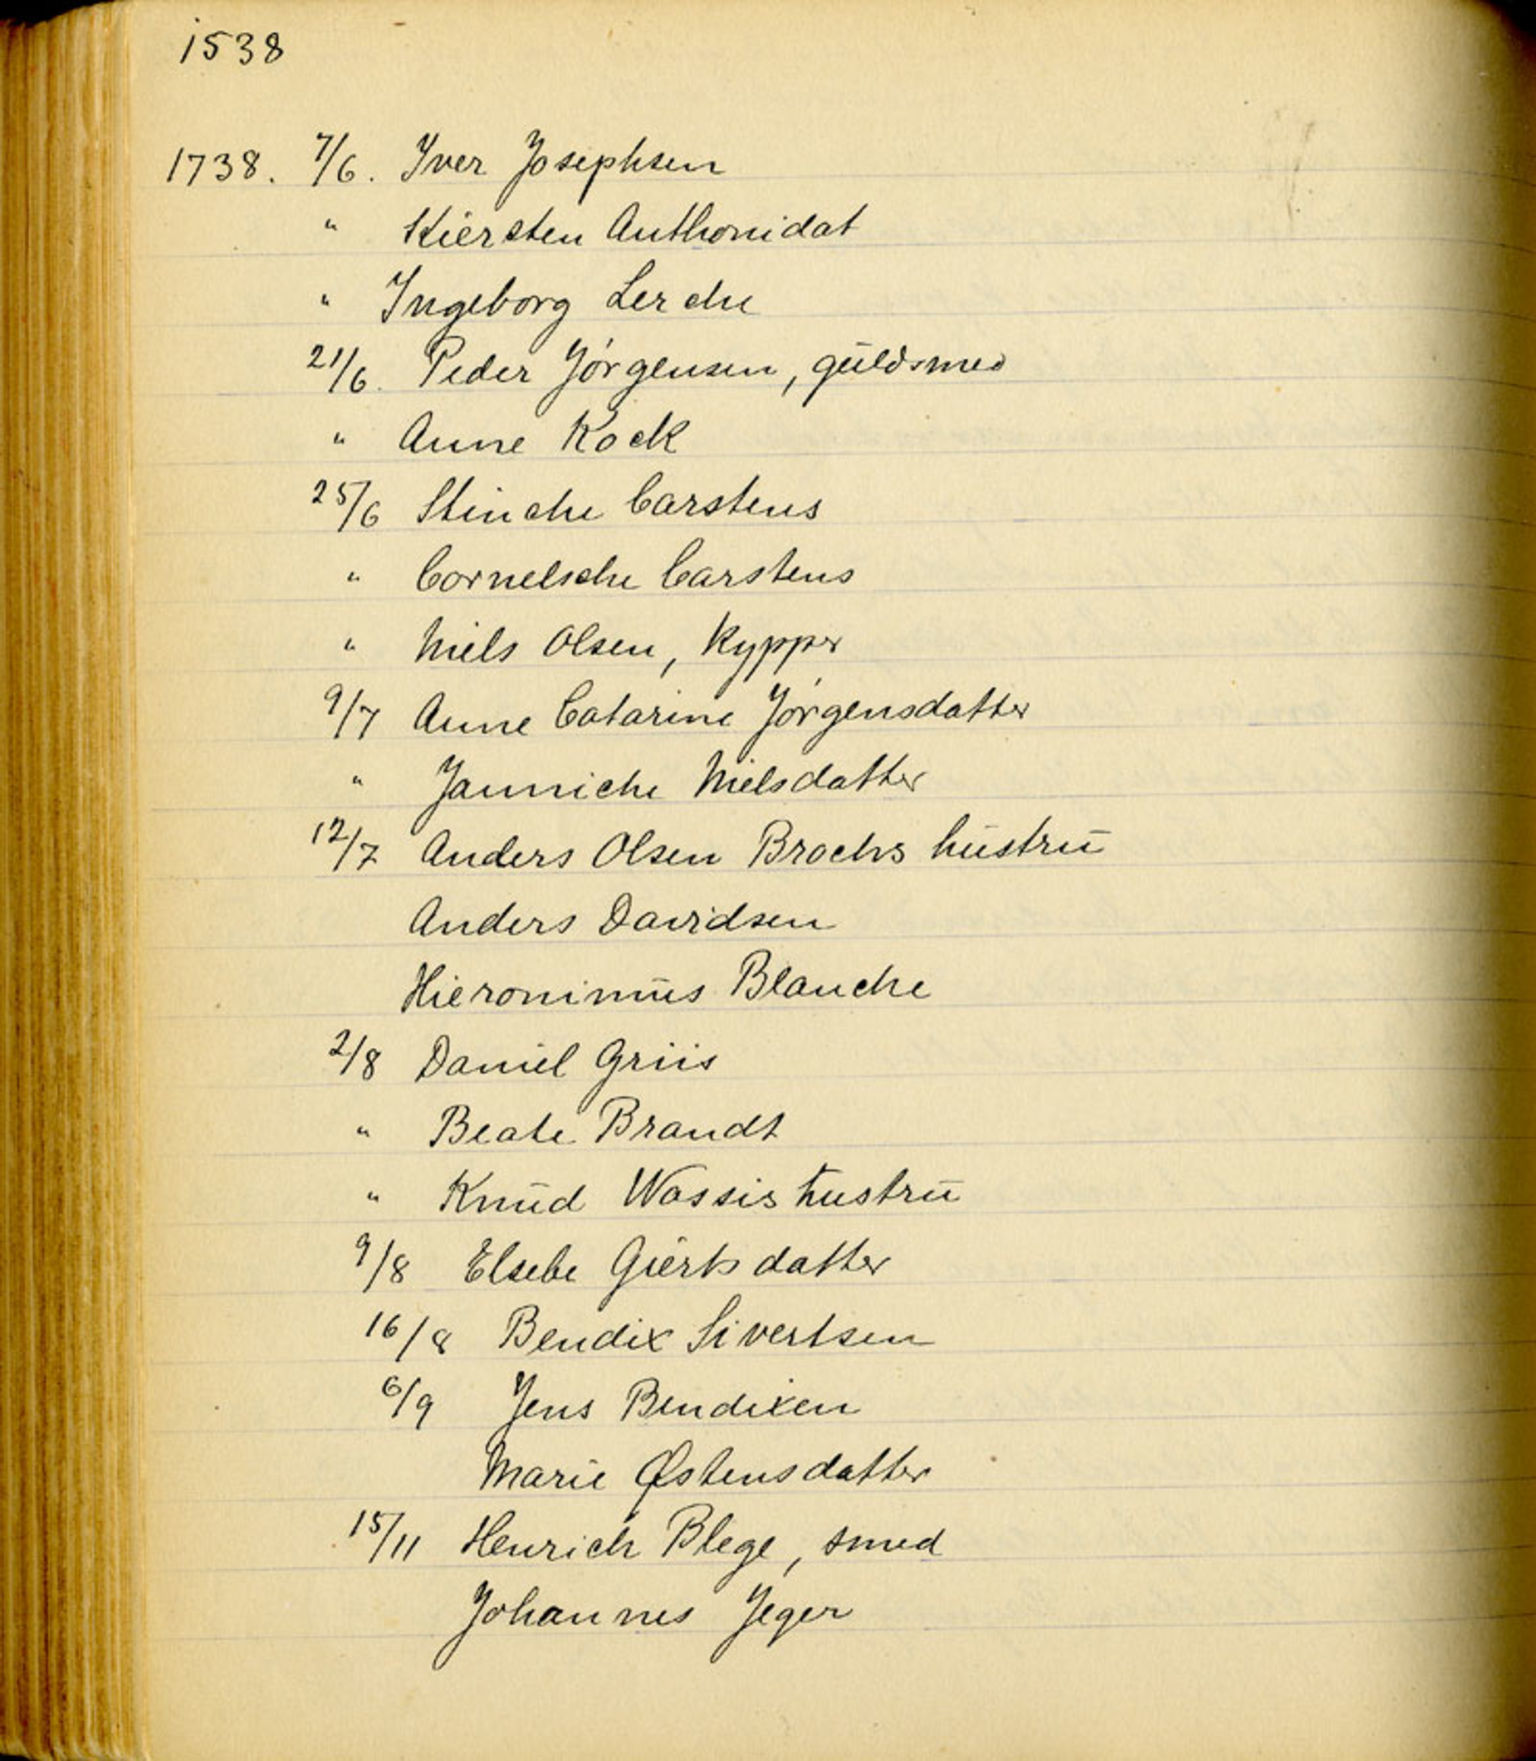 1538
1738. 7/6. Iver Josephsen
" Kiersten Anthonidat
" Ingeborg Lerche
21/6. Peder Jörgensen, guldsmed
" Anne Kock
25/6 Stinche Carstens
" Cornelsche Carstens
" Niels Olsen, Kypper
9/7 Anne Catarine Jörgensdatter
" Janniche Nielsdatter
12/7 Anders Olsen Brochs hustru
Anders Davidsen
Hieronimus Blanche
2/8 Daniel Griis
" Beate Brandt
" Knud Wassis hustru
9/8 Elsebe Giertsdatter
16/8 Bendix Sivertsen
6/9 Jens Bendixen
Marie Østensdatter
15/11 Henrich Blege, smed
Johannes Jeger